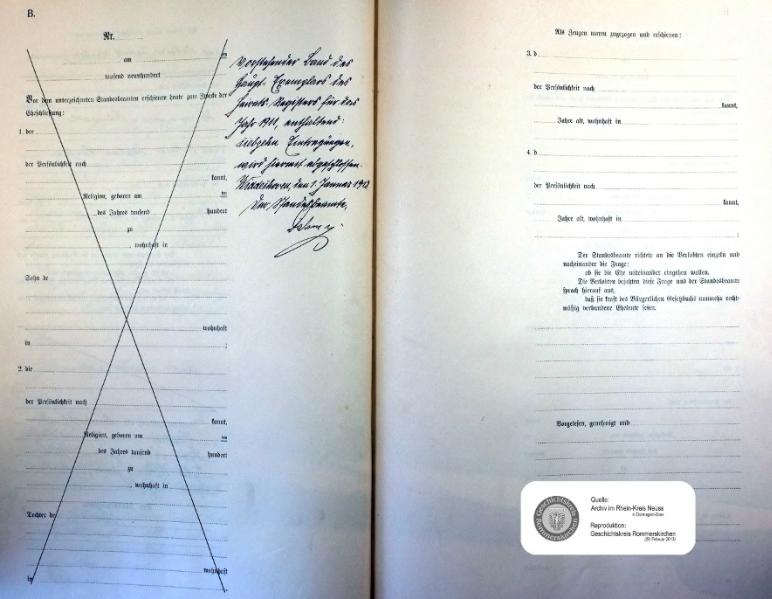 B.
Nr.
am
tausend neunhundert
Vor dem unterzeichneten Standesbeamten erschienen heute zum Zwecke der
Eheschließung:
1. der
der Persönlichkeit nach
kannt,
Religion, geboren am
des Jahres tausend hundert
zu
, wohnhaft in
Sohn de
wohnhaft
in ;
2. die
der Persönlichkeit nach
kannt,
Religion, geboren am
des Jahres tausend hundert
zu
, wohnhaft in
Tochter de
wohnhaft
in
Vorstehender Band des
Haupt-Exemplars des
Heirats-Registers für das
Jahr 1911, enthaltend:
siebzehn Eintragungen,
wird hiermit abgeschlossen.
den 1. Januar 1912
Der Standesbeamte,
Als Zeugen waren zugezogen und erschienen:
3. d
der Persönlichkeit nach
kannt,
Jahre alt, wohnhaft in
;
4. d
der Persönlichkeit nach
kannt,
Jahre alt, wohnhaft in
;
Der Standesbeamte richtete an die Verlobten einzeln und
nacheinander die Frage:
ob sie die Ehe miteinander eingehen wollen.
Die Verlobten bejahten diese Frage und der Standesbeamte
sprach hierauf aus,
daß sie kraft des Bürgerlichen Gesetzbuchs nunmehr recht-
mäßig verbundene Eheleute seien.
Vorgelesen, genehmigt und
Geschichtskreis
Rommerskirchen
Quelle:
Archiv im Rhein-Kreis Neuss
in Dormagen-Zons
Reproduktion:
Geschichtskreis Rommerskirchen